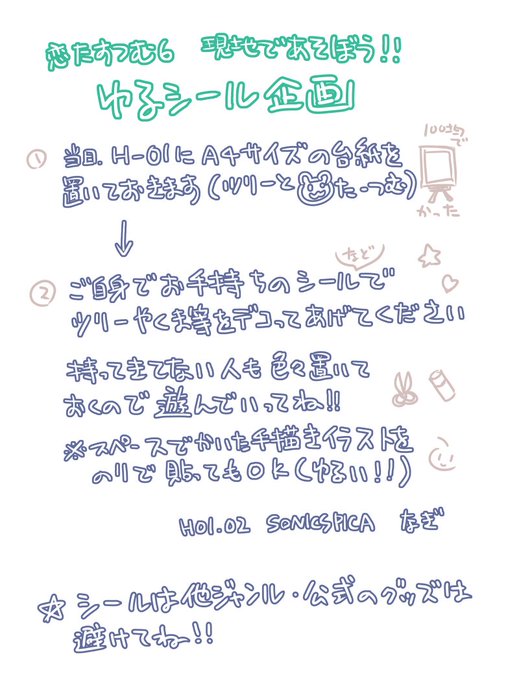 恋たすつむ6 現地であそぼう!!
ゆるシール企画
① 当日、H-01にA4サイズの台紙を
置いておきます(ツリーと たーつむ)
100均で
かった
↓
など
② ご自身でお手持ちのシールで
ツリーやくま等をデコってあげてください
持ってきてない人も色々置いて
おくので遊んでいってね!!
※スペースでかいた手描きイラストを
のりで貼ってもOK(ゆるい!!)
H01.02 SONICSPICA なぎ
☆シールは他ジャンル・公式のグッズは
避けてね!!